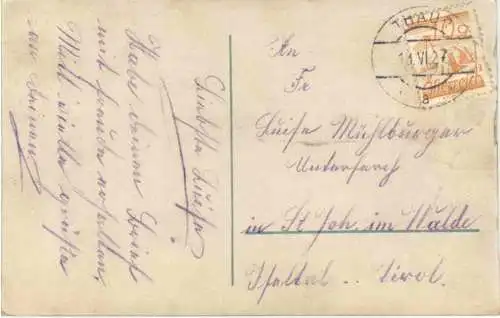 Liebste Luise
Habe deinen Brief
mit freude erhalten,
Weitere
viele grüße
von Deiner
An
Fr
Luise Mühlburger
Unterfarch
in St Joh. im Walde
Iseltal .. Tirol.
THAUR
11.VI.27
a